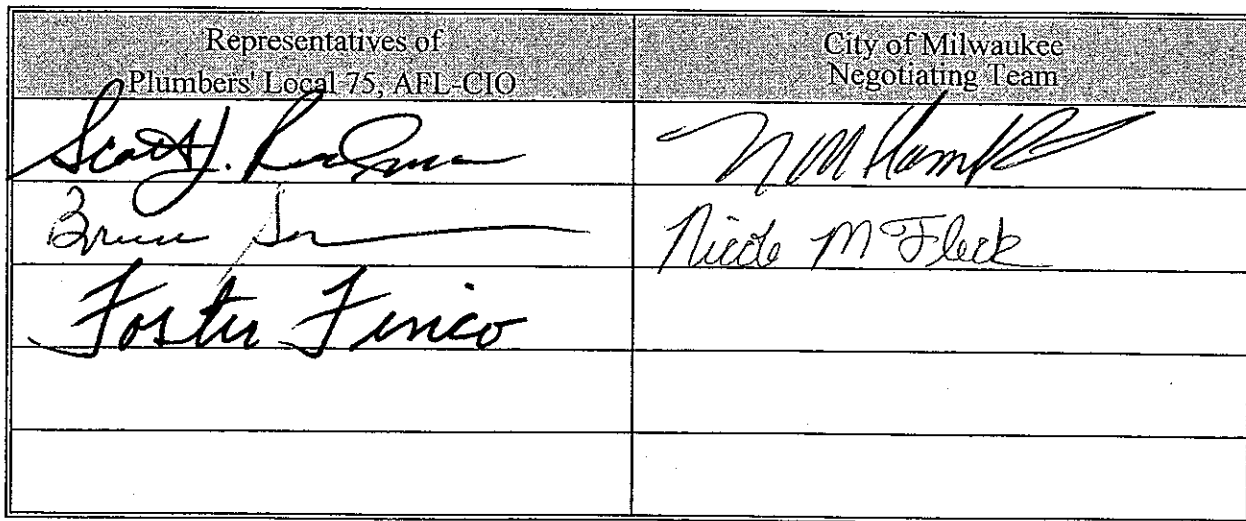 Representatives of
Plumbers' Local 75, AFL-CIO
City of Milwaukee
Negotiating Team
Scott J.
Bruce
Nicole M Fleck
Foster Finico